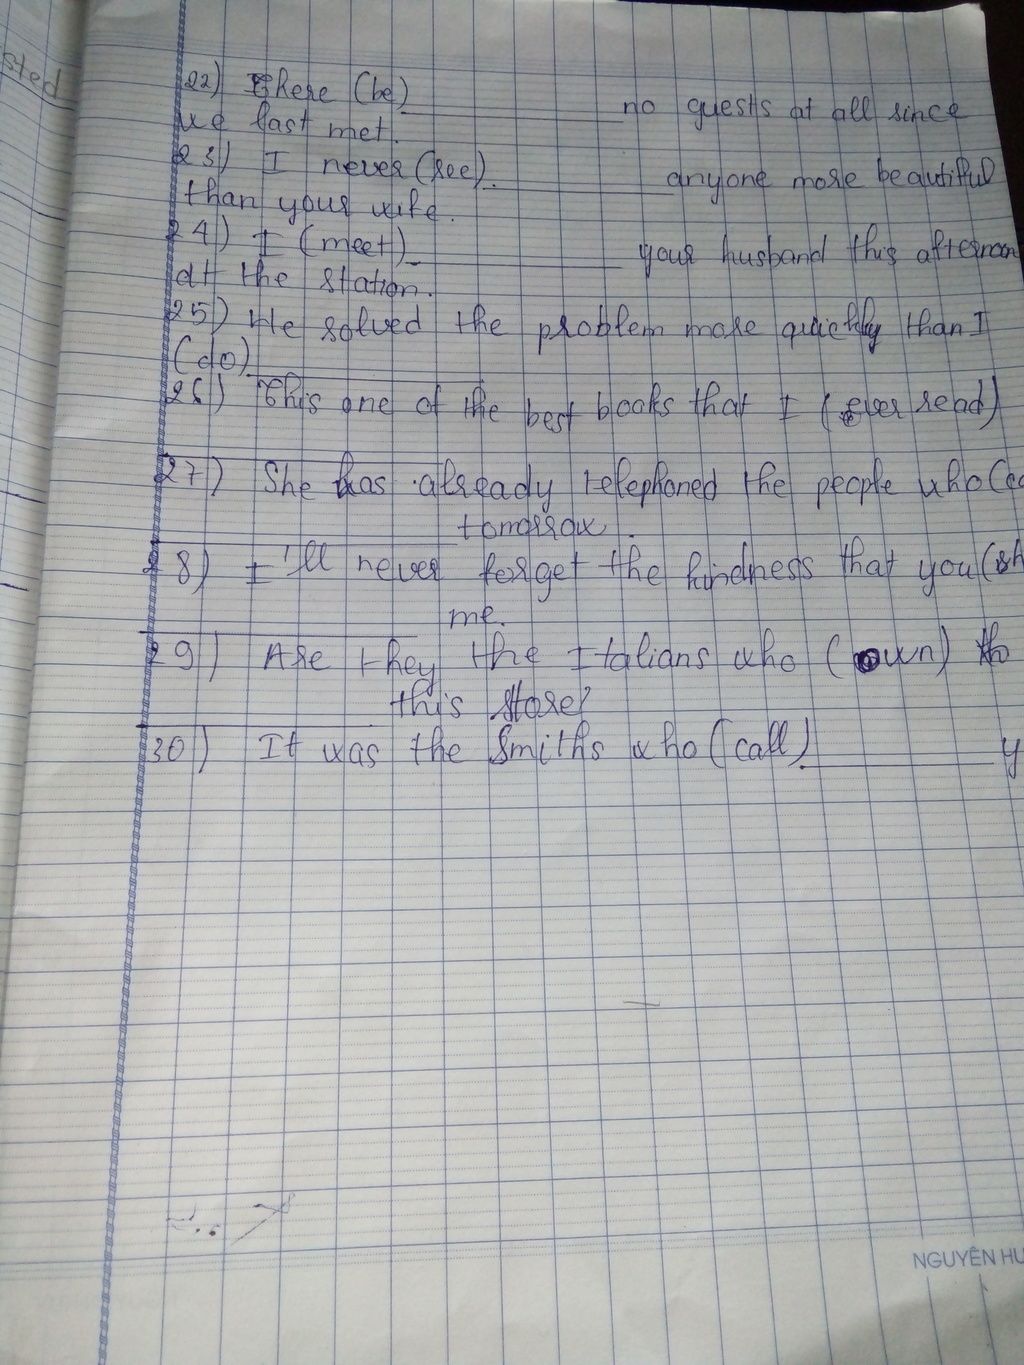 sted
22) There (be)__________ no guests at all since
we last met.
23) I never (see).__________ anyone more beautiful
than your wife.
24) I (meet)__________ your husband this afternoon
at the station.
25) He solved the problem more quickly than I
(do)__________
26) This one of the best books that I (ever read)
__________
27) She has already telephoned the people who
__________ tomorrow.
28) I'll never forget the kindness that you (sh
__________ me.
29) Are they the Italians who (own)
__________ this store?
30) It was the Smiths who (call).__________ y
NGUYÊN HU